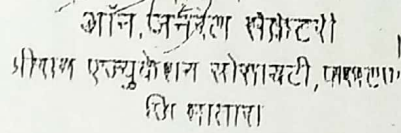 ऑन. जनरल सेक्रेटरी
श्रीराम एज्युकेशन सोसायटी, फलटण
जि सातारा